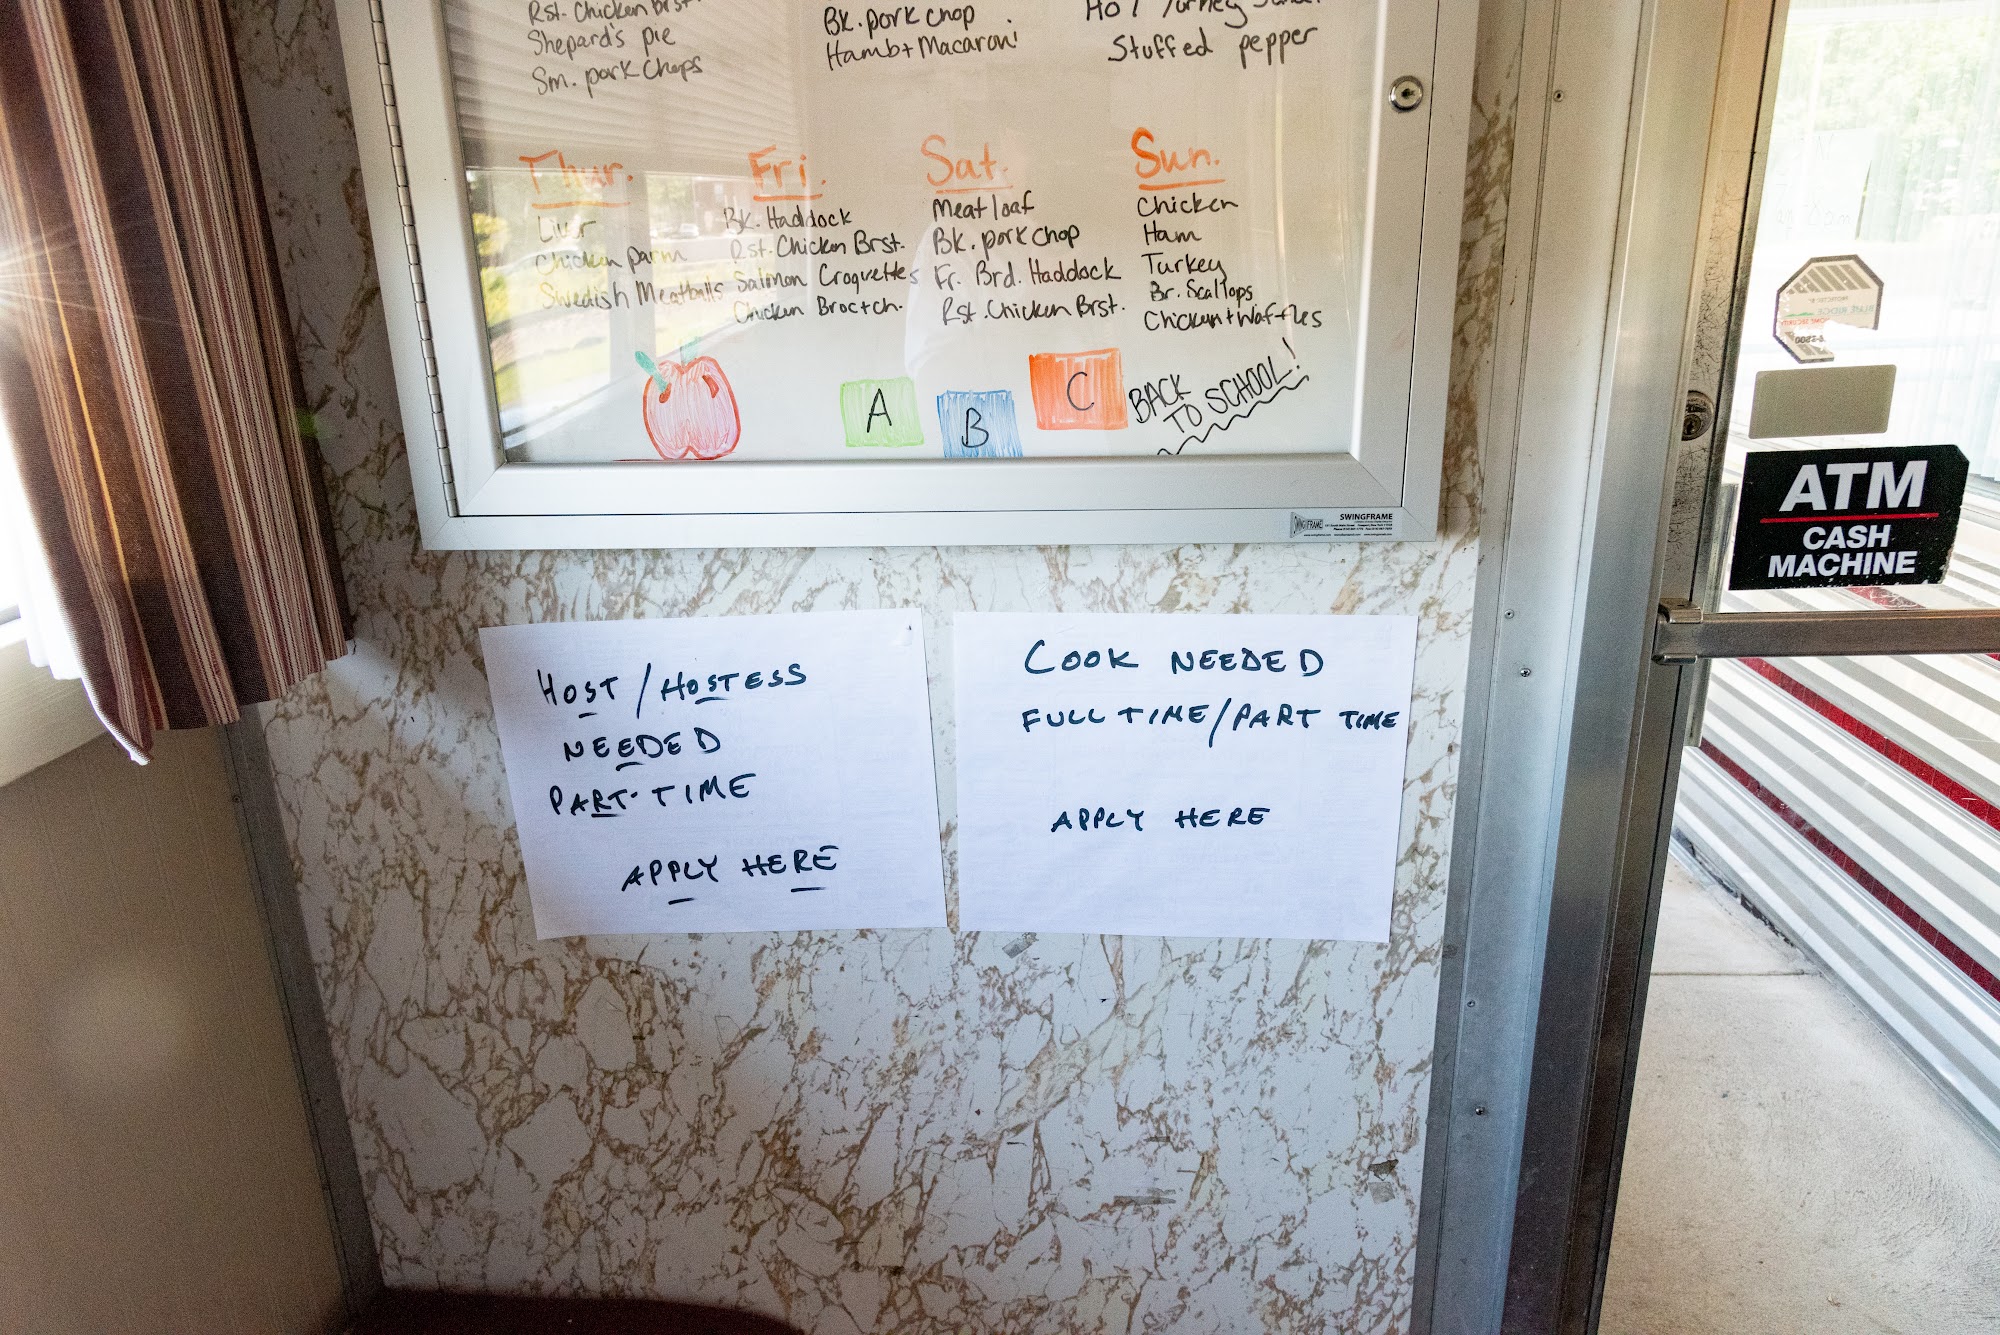 Rst. Chicken Brst.
Shepard's pie
Sm. pork chops
Bk. pork chop
Hamb + Macaroni
Hot Turkey
Stuffed pepper
Thur.
Liver
Chicken parm
Swedish Meatballs
Fri.
Bk. Haddock
Rst. Chicken Brst.
Salmon Croquettes
Chicken Broc + ch.
Sat.
Meatloaf
Bk. pork chop
Fr. Brd. Haddock
Rst. Chicken Brst.
Sun.
Chicken
Ham
Turkey
Br. Scallops
Chicken + Waffles
A
B
C
BACK
TO SCHOOL!
SWINGFRAME
HOST / HOSTESS
NEEDED
PART-TIME
APPLY HERE
COOK NEEDED
FULL TIME/PART TIME
APPLY HERE
ATM
CASH
MACHINE